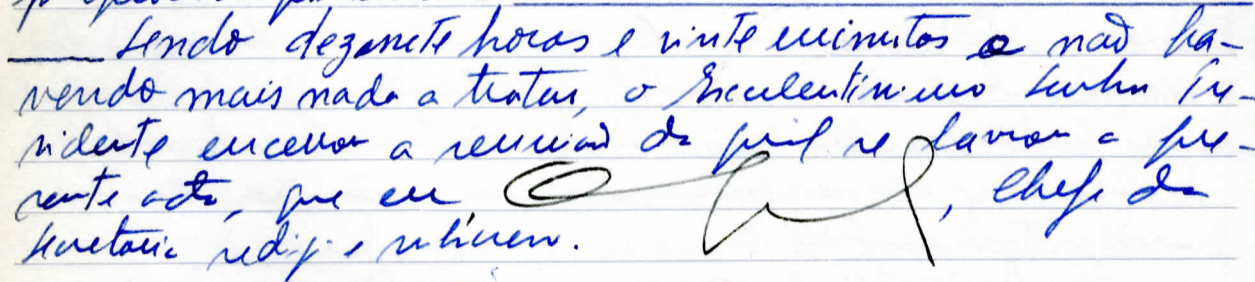 Sendo dezassete horas e vinte minutos e não ha-
vendo mais nada a tratar, o Excelentíssimo Senhor Pre-
sidente encerrou a reunião da qual se lavrou a pre-
sente acta, que eu, , Chefe da
Secretaria redigi e subscrevo.